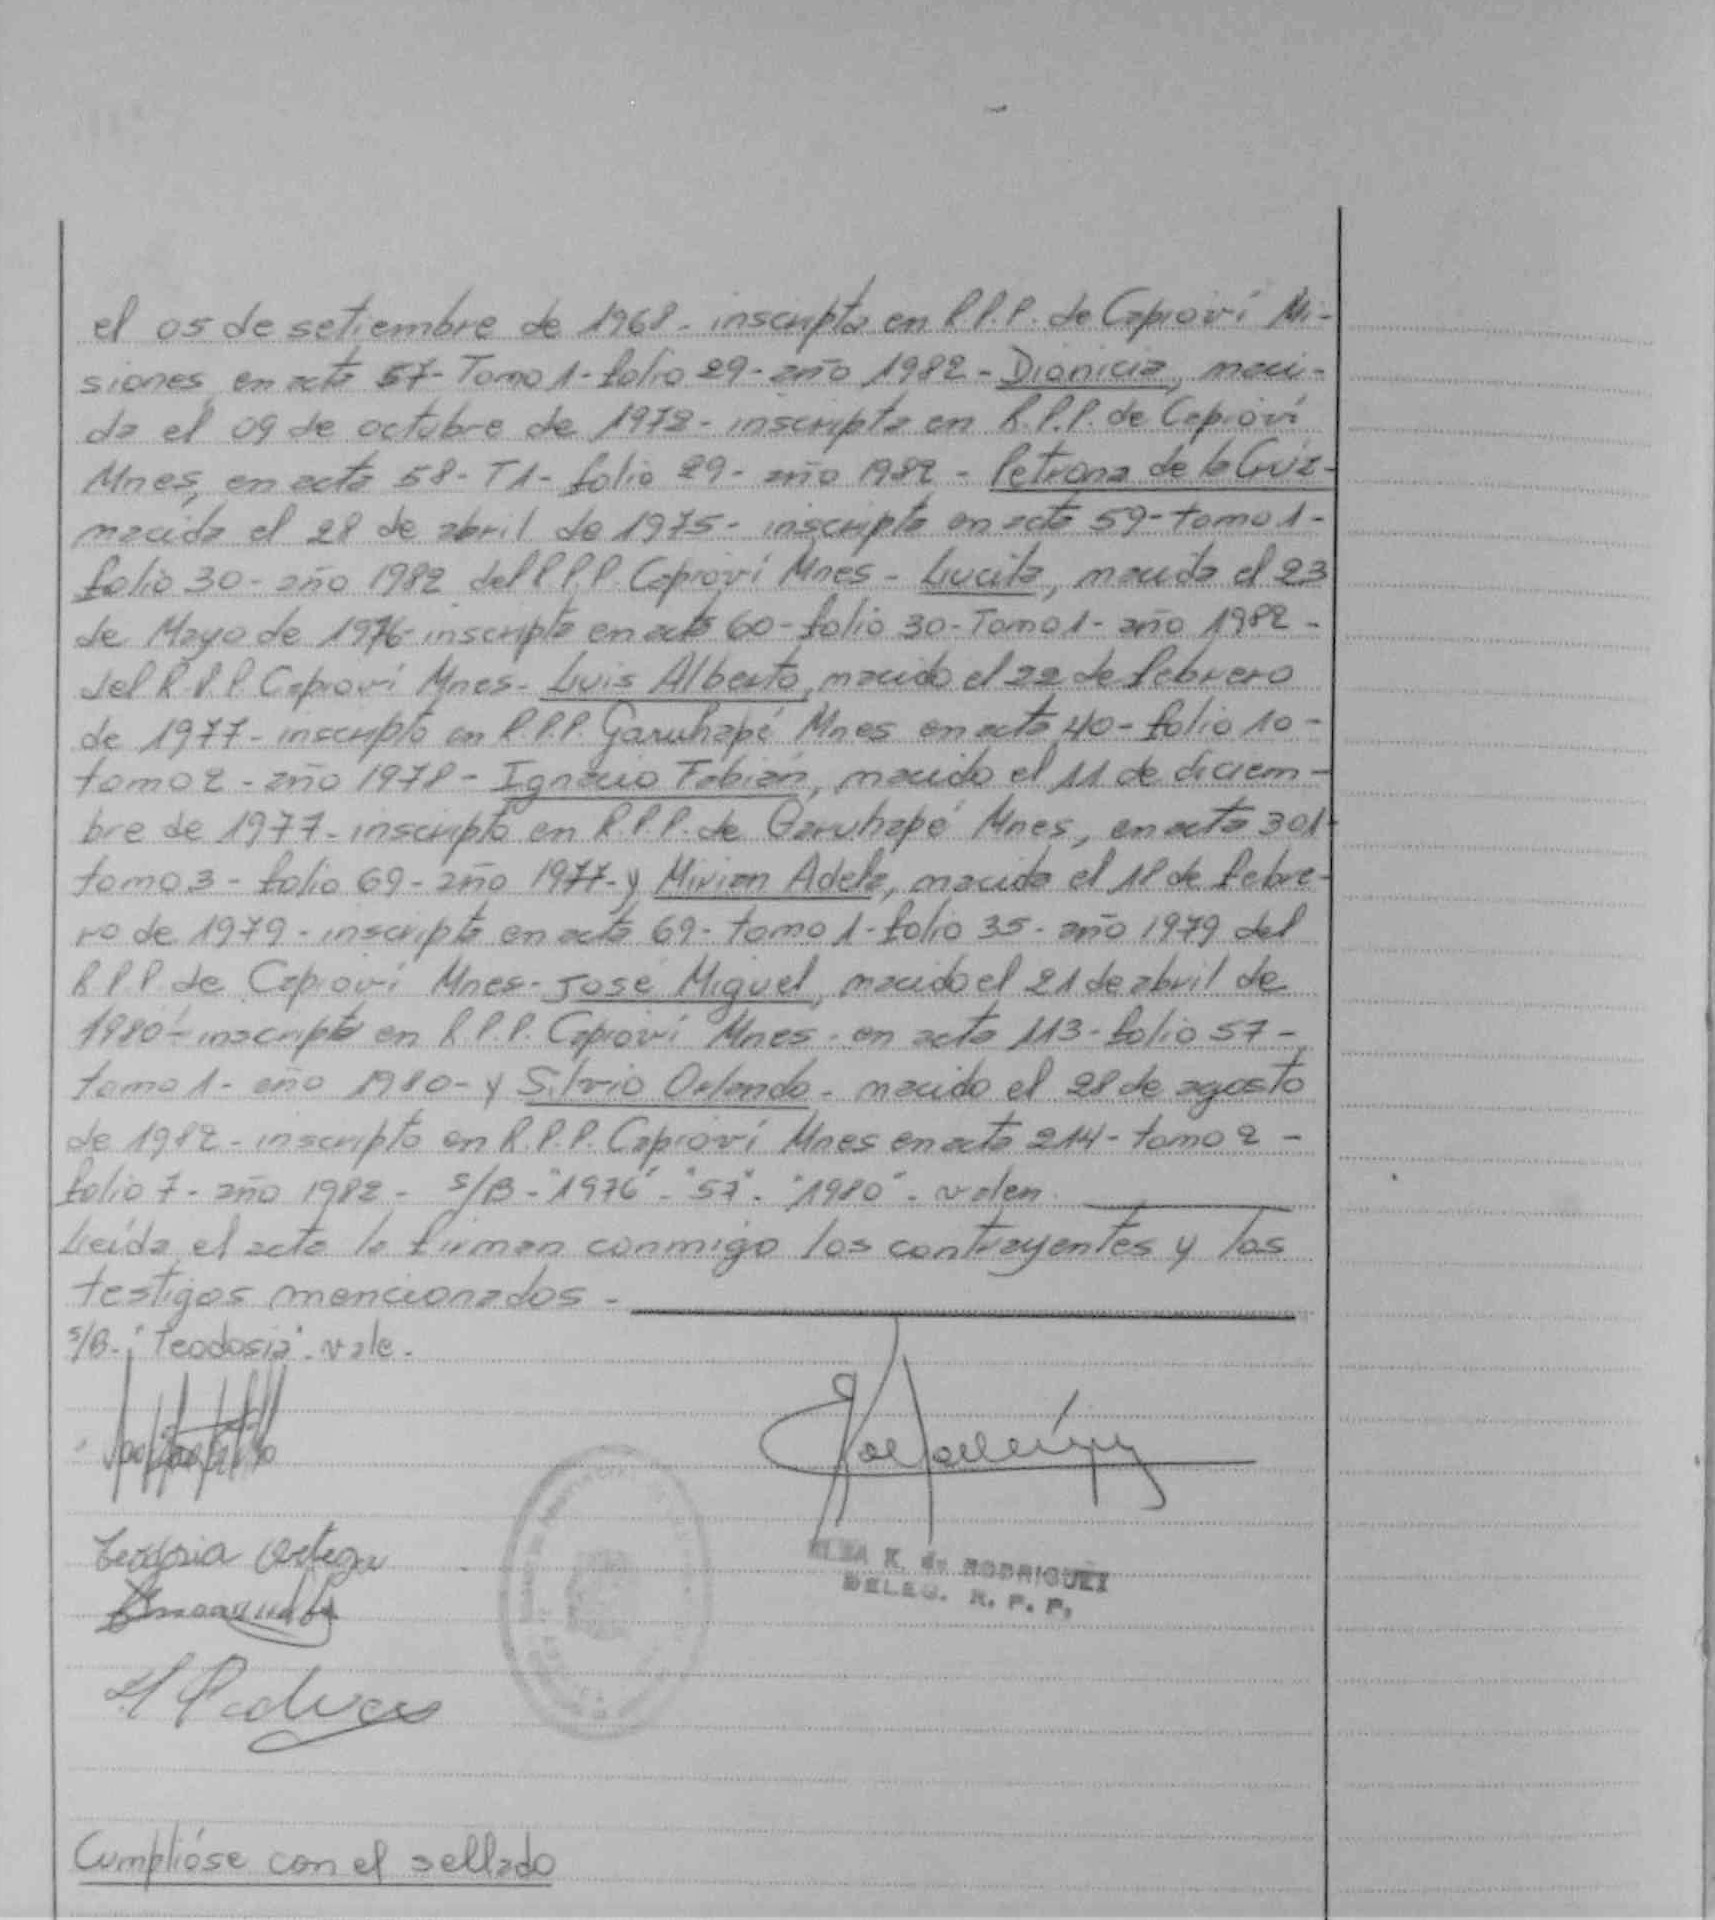 el 05 de setiembre de 1968 - inscripta en R.P.P. de Capioví Mi-
siones, en acta 57 - Tomo 1 - folio 29 - año 1982 - Dionicia, naci-
da el 09 de octubre de 1972 - inscripta en R.P.P. de Capioví
Mnes, en acta 58 - T1 - folio 29 - año 1982 - Petrona de la Cruz -
nacida el 28 de abril de 1975 - inscripta en acta 59 - tomo 1 -
folio 30 - año 1982 del R.P.P. Capioví Mnes - Lucila, nacida el 23
de Mayo de 1976 - inscripta en acta 60 - folio 30 - Tomo 1 - año 1982 -
del R.P.P. Capioví Mnes - Luis Alberto, nacido el 22 de febrero
de 1977 - inscripto en R.P.P. Garuhapé Mnes en acta 40 - folio 10 -
tomo 2 - año 1978 - Ignacio Fabián, nacido el 11 de diciem-
bre de 1977 - inscripto en R.P.P. de Garuhapé Mnes, en acta 301
tomo 3 - folio 69 - año 1977 - y Mirian Adela, nacida el 18 de febre-
ro de 1979 - inscripta en acta 69 - tomo 1 - folio 35 - año 1979 del
R.P.P. de Capioví Mnes - José Miguel, nacido el 21 de abril de
1980 - inscripto en R.P.P. Capioví Mnes - en acta 113 - folio 57 -
tomo 1 - año 1980 - y Silvio Orlando - nacido el 28 de agosto
de 1982 - inscripto en R.P.P. Capioví Mnes en acta 214 - tomo 2 -
folio 7 - año 1982 - s/B - "1976" - "57" - "1980" - valen.
Leída el acta la firman conmigo los contrayentes y los
testigos mencionados -
s/B - "Teodosia" - vale.
Teodosia Ortega
ELSA K. de RODRIGUEZ
DELEG. R. P. P.
Cumplióse con el sellado